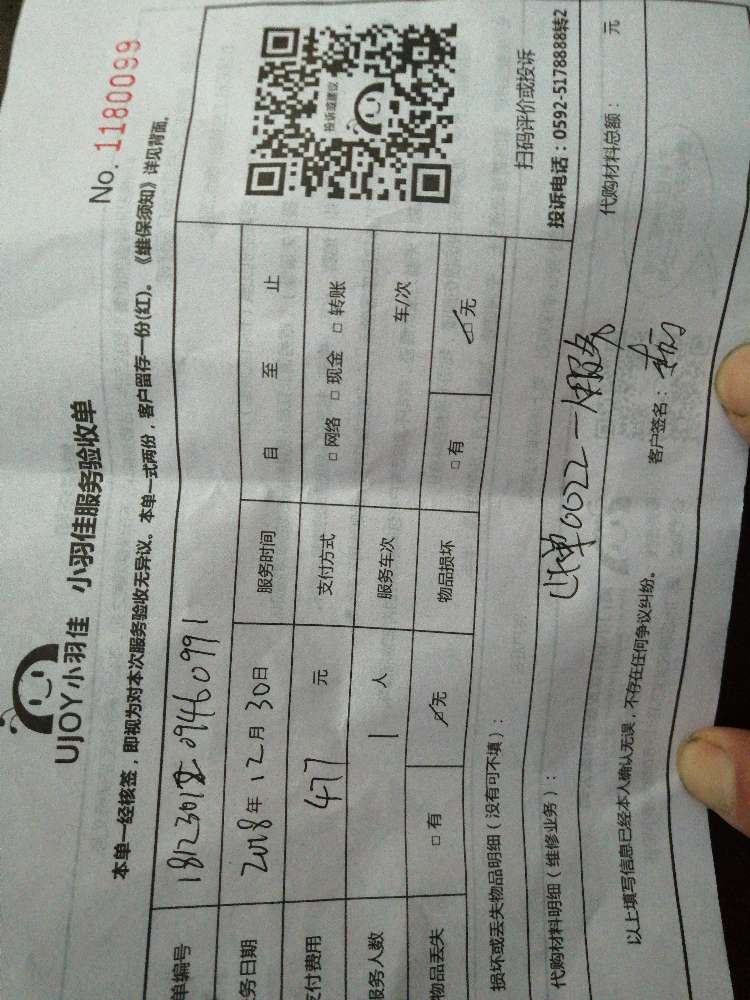 UJOY小羽佳 小羽佳服务验收单
No. 1180099
本单一经核签，即视为对本次服务验收无异议。本单一式两份，客户留存一份(红)。《维保须知》详见背面。
单编号
务日期 2018年12月30日 服务时间 自 至 止
支付费用 477 元 支付方式 □网络 □现金 □转账
服务人数 1 人 服务车次 车/次
物品丢失 □有 □无 物品损坏 □有 □无
投诉或建议
扫码评价或投诉
投诉电话：0592-5178888转2
损坏或丢失物品明细（没有可不填）：
代购材料明细（维修业务）： 0022一
代购材料总额： 元
以上填写信息已经本人确认无误，不存在任何争议纠纷。 客户签名：